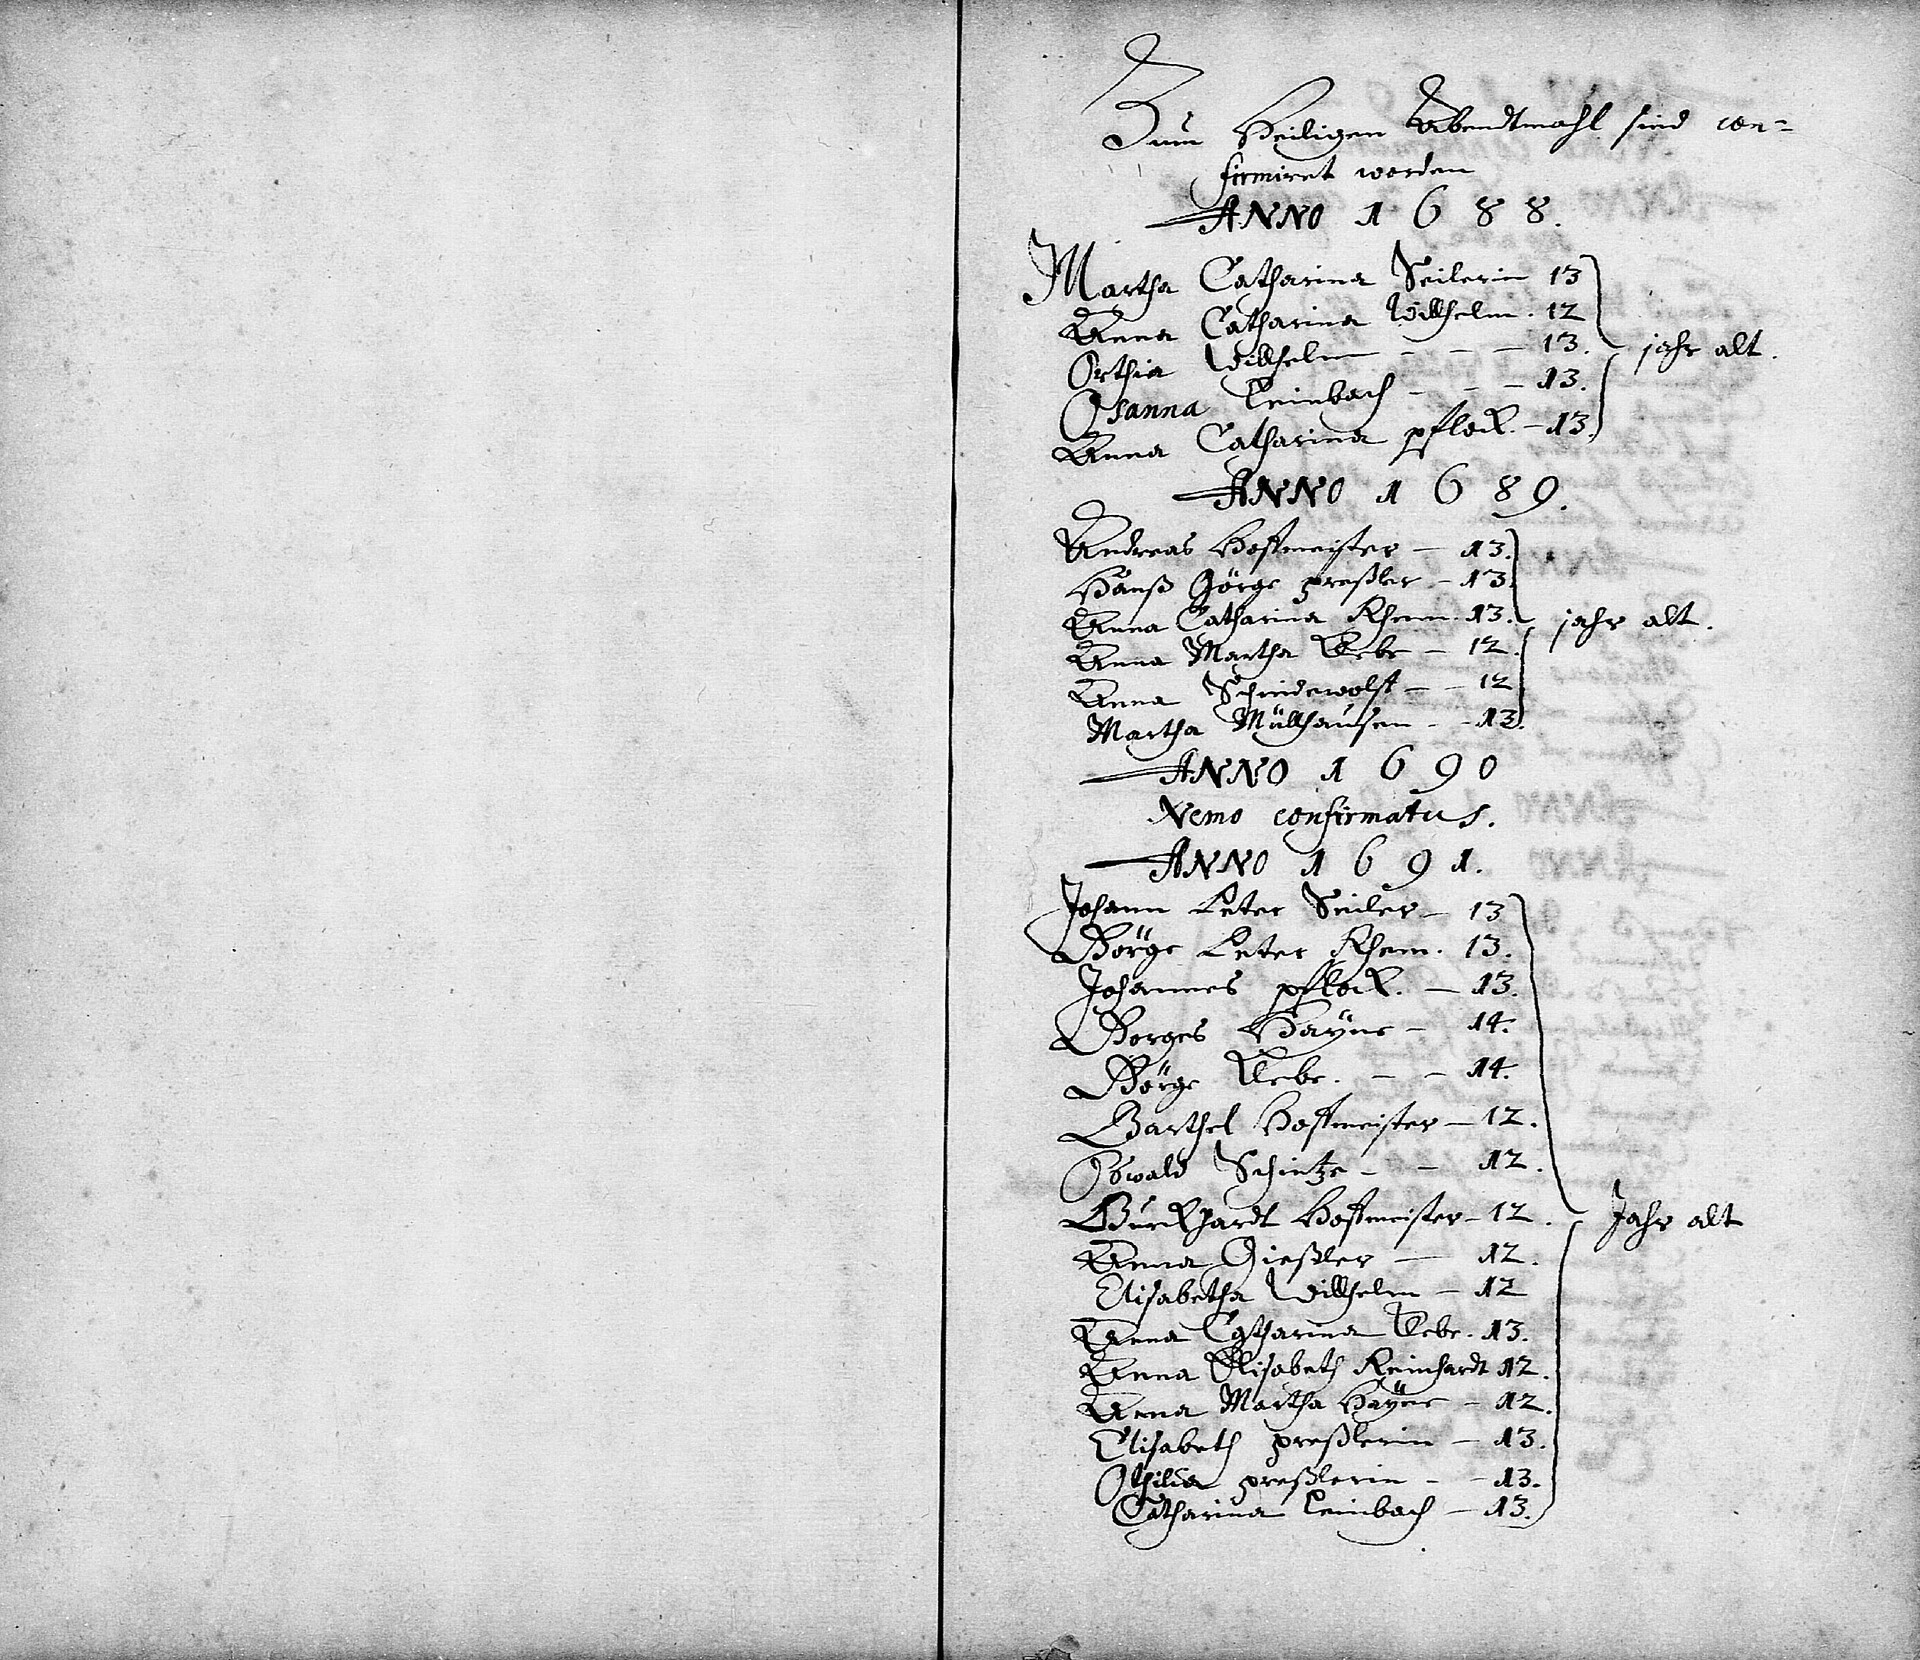 Zum Heiligen Abendtmahl sind con=
firmiret worden
ANNO 1688.
Martha Catharina Seilerin 13
Anna Catharina Willhelm. 12
Orthia Willhelm - - - 13. jahr alt.
Osanna Leinbach - - - 13.
Anna Catharina pflock. - 13.
ANNO 1689.
Andreas Hoffmeister - 13.
Hanß Görge preßler - 13.
Anna Catharina Rhem. 13. jahr alt.
Anna Martha Klebe - 12.
Anna Schindewolff - - 12
Martha Müllhausen - - 13.
ANNO 1690
Nemo confirmatus.
ANNO 1691.
Johann Peter Seiler - 13
Görge Peter Rhem. 13.
Johannes pflock. - 13.
Gorges Hayne - 14.
Görge Klebe. - - 14.
Barthel Hoffmeister - 12.
Oswald Schintze - - 12.
Burckhardt Hoffmeister - 12. Jahr alt
Anna Gießler - 12.
Elisabetha Willhelm - 12
Anna Catharina Klebe. 13.
Anna Elisabeth Reinhardt 12.
Anna Martha Hayne - 12.
Elisabeth preßlerin - 13.
Othilia preßlerin - - 13.
Catharina Leinbach - 13.